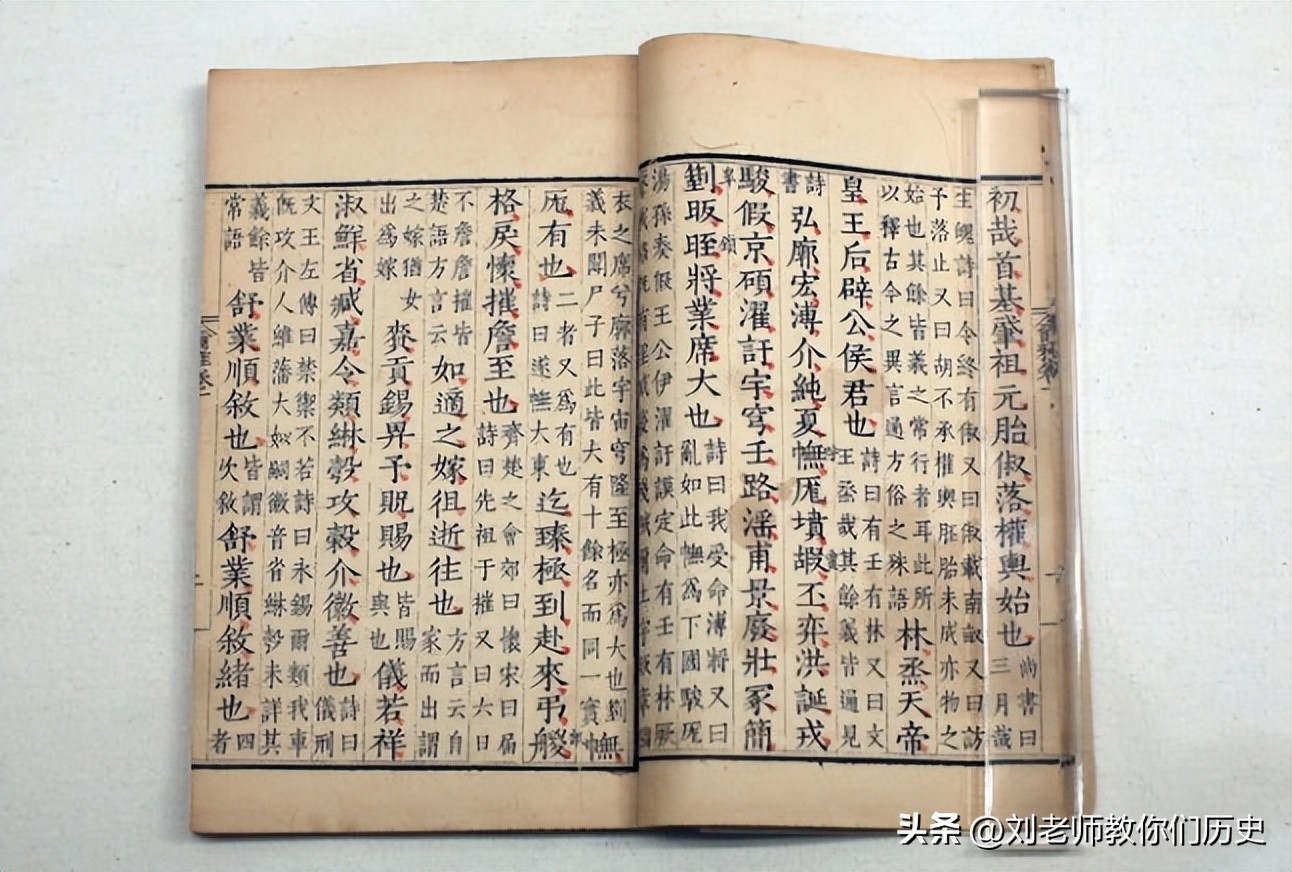 初哉首基肇祖元胎俶落權輿始也尚書曰三月哉
生魄詩曰令終有俶又曰俶載南畝又曰訪
予落止又曰胡不承權輿胚胎未成亦物之
始也其餘皆義之常行者耳此所以釋古今之異言通方俗之殊語林烝天帝
皇王后辟公侯君也詩曰有壬有林又曰文王烝哉其餘義皆通見
詩書弘廓宏溥介純夏憮厖墳嘏丕弈洪誕戎
駿假京碩濯訏宇穹壬路淫甫景廢壯冢簡
箌昄晊將業席大也詩曰我受命溥將又曰亂如此憮爲下國駿厖
湯孫奏假王公伊濯訏謨定命有壬有林厥
衣之席兮廓落宇宙穹隆至極亦爲大也箌
義未聞尸子曰此皆大有十餘名而同一實憮
厖有也二者又爲有也詩曰遂憮大東迄臻極到赴來弔艐
格戾懷摧詹至也齊楚之會郊曰懷宋曰屆詩曰先祖于摧又曰六日
不詹詹摧皆楚語方言云如適之嫁徂逝往也方言云自家而出謂
之嫁猶女出爲嫁賚貢錫畀予貺賜也皆賜與也儀若祥
淑鮮省臧嘉令類綝彀攻穀介徽善也詩曰儀刑
文王左傳曰禁禦不若詩曰永錫爾類我車
旣攻介人維藩大姒嗣徽音省綝彀未詳其
義餘皆常語舒業順敘也皆謂次敘舒業順敘緒也四者
头条 @刘老师教你们历史